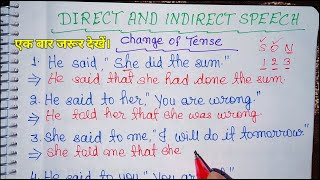 DIRECT AND INDIRECT SPEECH
एक बार जरूर देखें।
Change of Tense
S O N
1 2 3
1. He said, "She did the sum."
⇒ He said that she had done the sum.
2. He said to her, "You are wrong."
⇒ He told her that she was wrong.
3. She said to me, "I will do it tomorrow."
⇒ She told me that she
4. He said to you, "You are